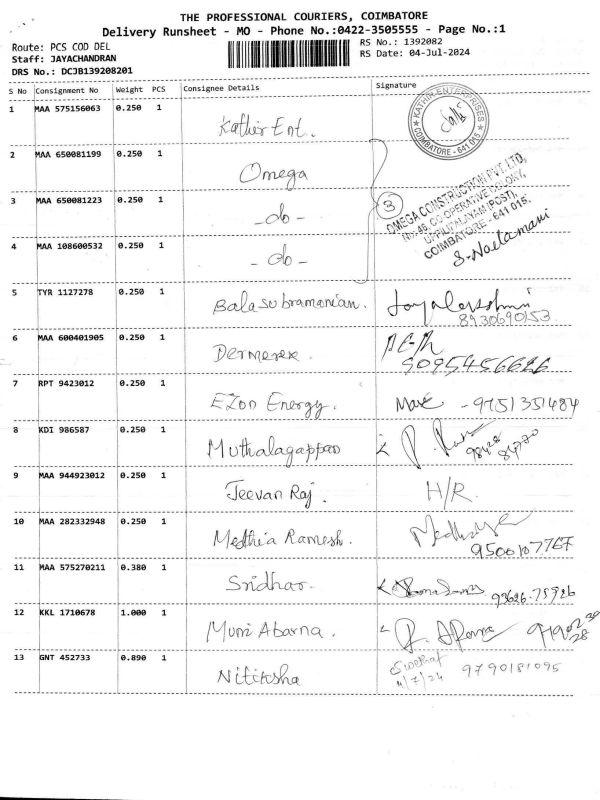 THE PROFESSIONAL COURIERS, COIMBATORE
Delivery Runsheet - MO - Phone No.:0422-3505555 - Page No.:1
Route: PCS COD DEL
RS No.: 1392082
Staff: JAYACHANDRAN
RS Date: 04-Jul-2024
DRS No.: DCJB139208201
S No Consignment No Weight PCS Consignee Details Signature
1 MAA 575156063 0.250 1 Kathir Ent.
KATHIR ENTERPRISES
COIMBATORE - 641 015
2 MAA 650081199 0.250 1 Omega
3 MAA 650081223 0.250 1 -do-
3
OMEGA CONSTRUCTION PVT LTD,
No:46, CO-OPERATIVE COLONY,
UPPILIPALAYAM (POST),
COIMBATORE - 641 015.
4 MAA 108600532 0.250 1 -do-
5 TYR 1127278 0.250 1 Balasubramanian.
8930690153
6 MAA 600401905 0.250 1 Dermerex.
9095456626
7 RPT 9423012 0.250 1 EZon Energy. - 9751351484
8 KDI 986587 0.250 1 Muthalagappan
98428
84770
9 MAA 944923012 0.250 1 Jeevan Raj. H/R.
10 MAA 282332948 0.250 1 Medhia Ramesh.
9500107767
11 MAA 575270211 0.380 1 Sridhar. 93626-75926
12 KKL 1710678 1.000 1 Muni Abarna.
13 GNT 452733 0.890 1 Nitiksha
4/7/24 9790181095